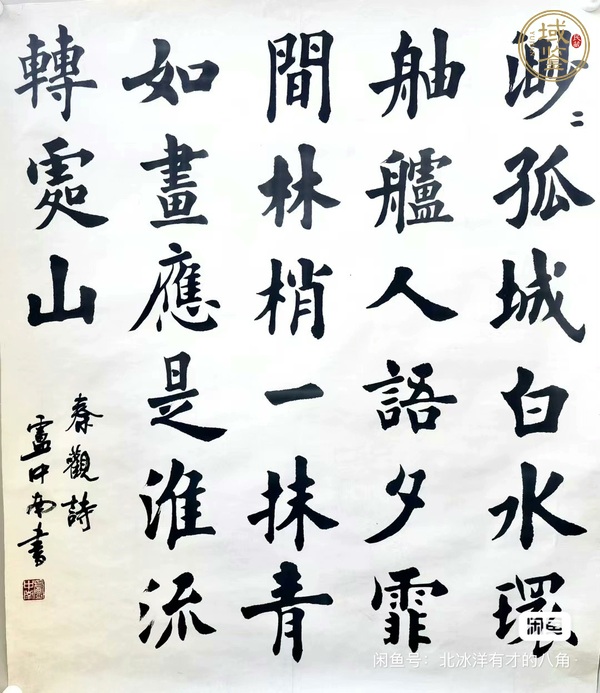 渺〻孤城白水環
舳艫人語夕霏
間林梢一抹青
如畫應是淮流
轉處山
秦觀詩
盧中南書
域鉴
闲鱼
闲鱼号：北冰洋有才的八角